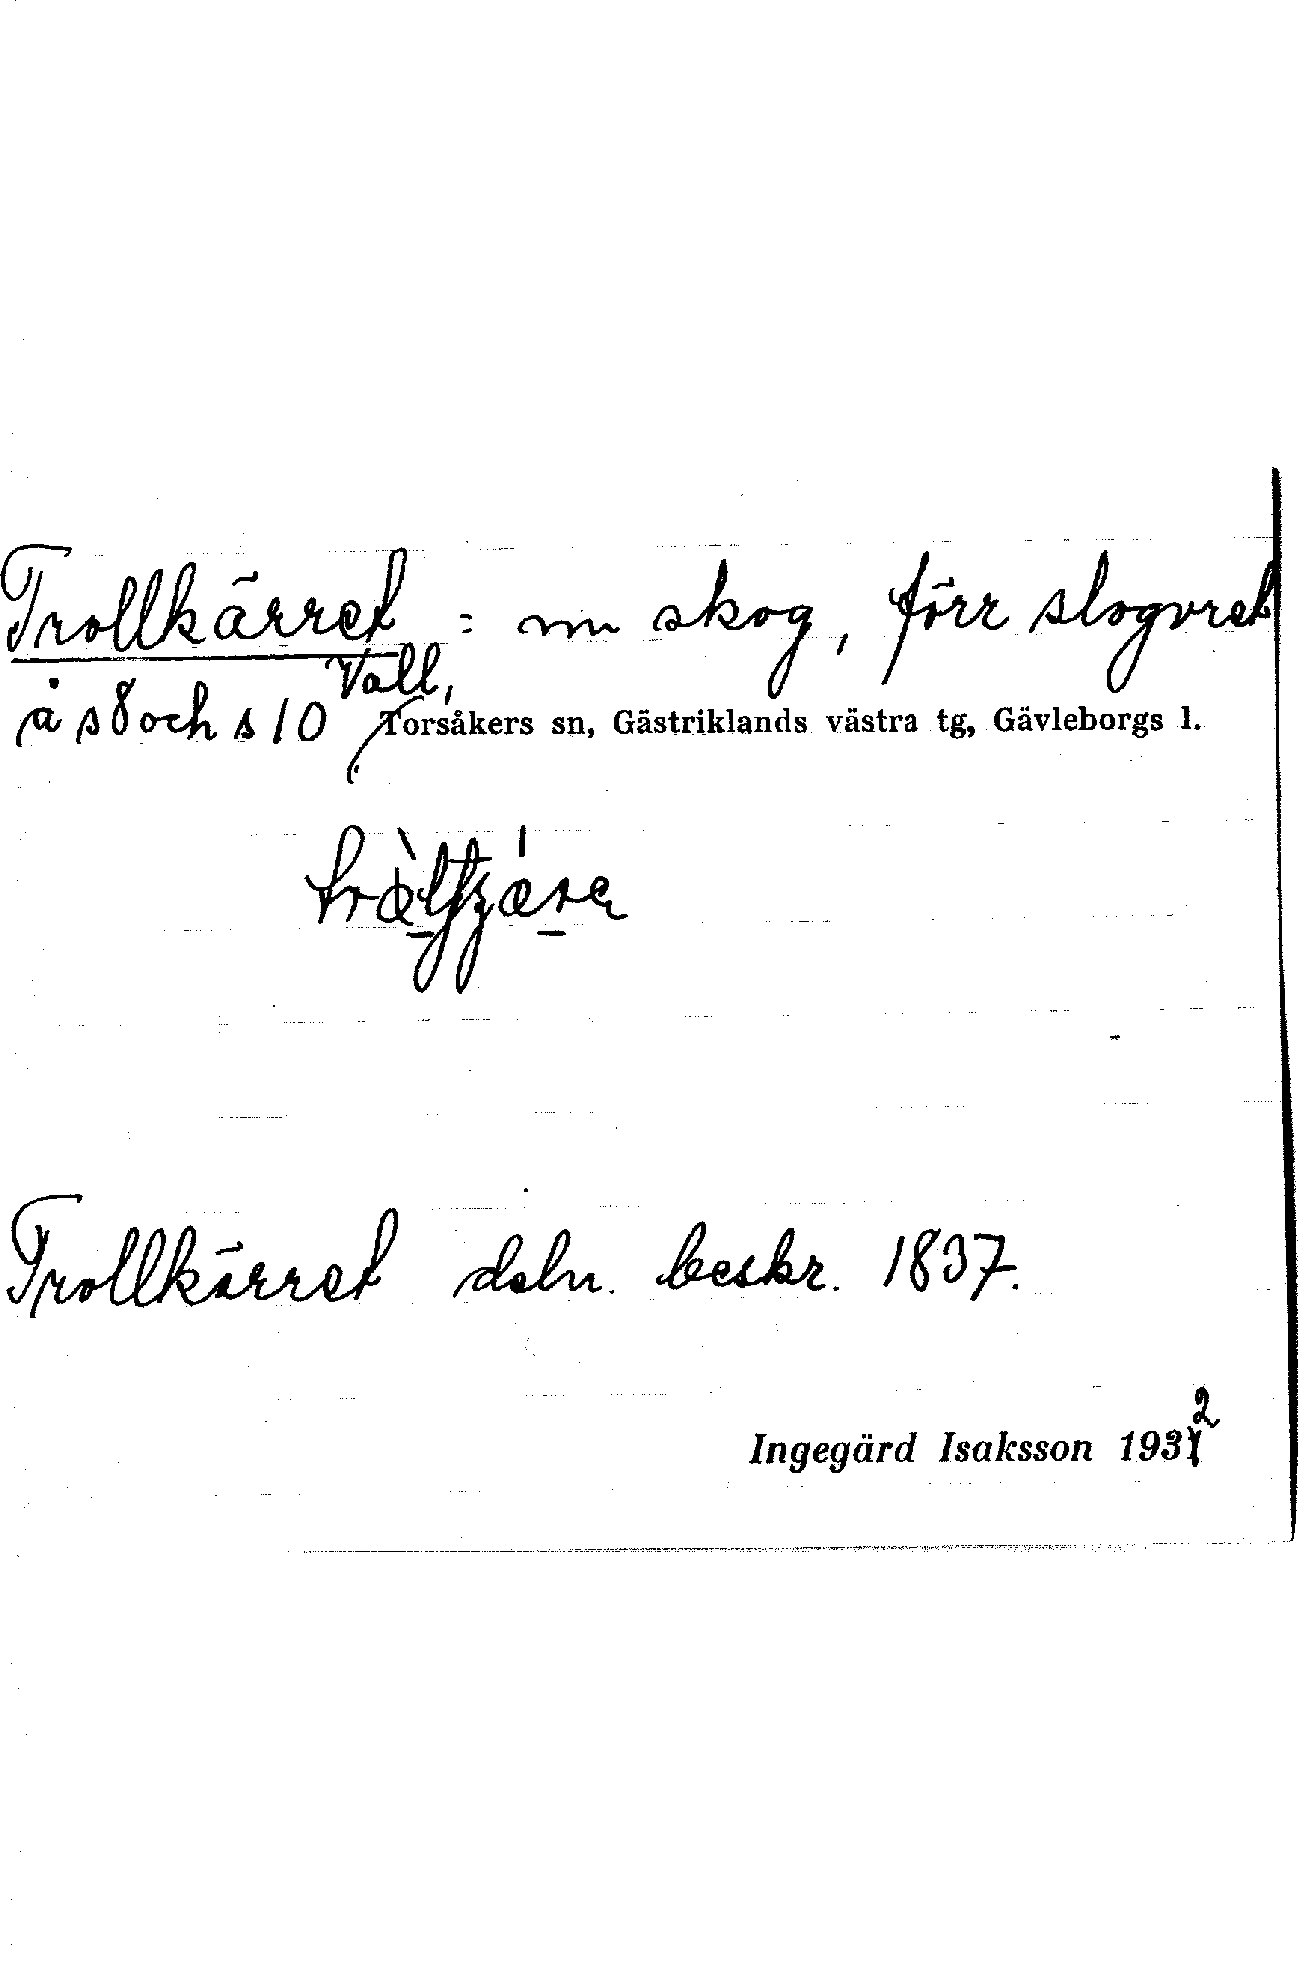 Trollkärret : nu skog, förr slogvret
å s 8 och s 10 Vall, Torsåkers sn, Gästriklands västra tg, Gävleborgs l.
Trollkärret deln. beskr. 1837.
Ingegärd Isaksson 1932